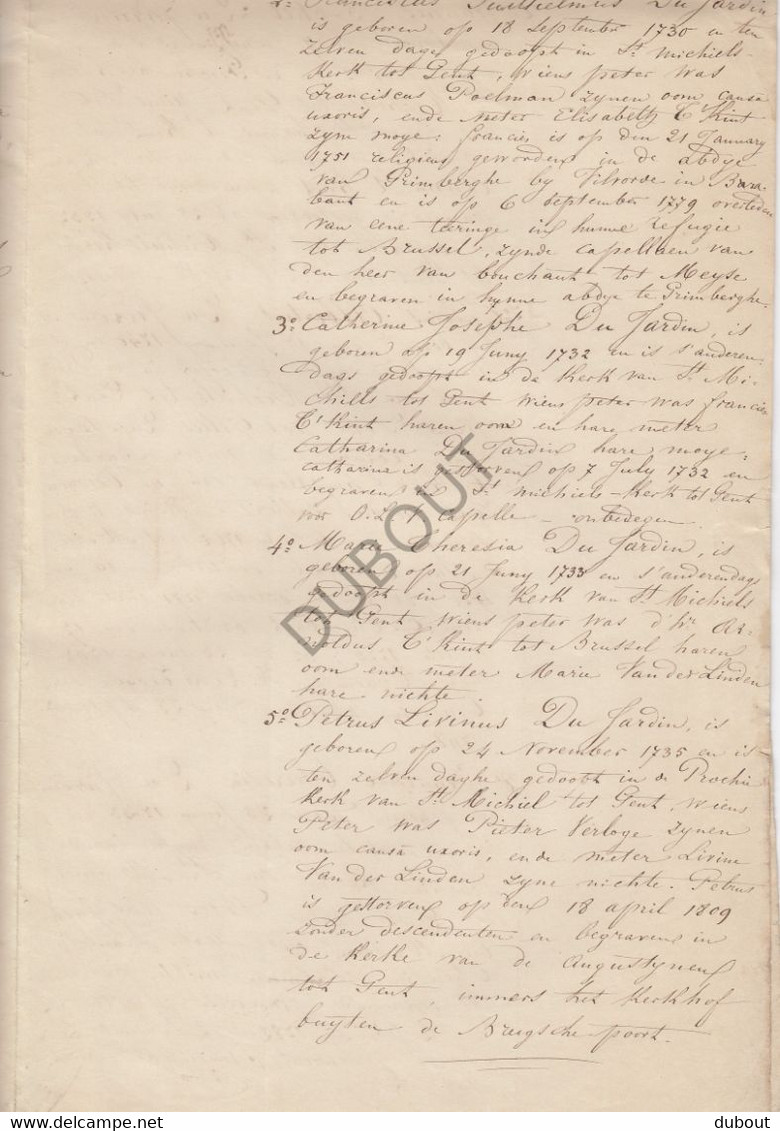 2º Franciscus Guilhelmus Du Jardin
is geboren op 18 September 1730 en ten
zelven dage gedoopt in St. Michiels-
Kerk tot Gent, wiens peter was
Franciscus Poelman zynen oom causa
uxoris, ende meter Elisabeth T'Kint
zyne moye: francies is op den 21 January
1751 religieus geworden in de abdye
van Grimberghe by Vilvorde in Bra-
bant en is op 6 September 1779 overleden
van eene teeringe in hunne refugie
tot Brussel, zynde capellaen van
den heer van bouchaut tot Meyse
en begraven in hynne abdye te Grimberghe.
3º Catherine Josephe Du Jardin, is
geboren op 19 Juny 1732 en is s'anderen-
dags gedoopt in de Kerk van St. Mi-
chiels tot Gent wiens peter was francies
T'Kint haren oom en hare meter
Catharina Du Jardin hare moye:
catharina is gestorven op 7 July 1732 en
begraven in St. michiels-Kerk tot Gent
voor O.L. V capelle - onbedegen.
4º Marie Theresia Du Jardin, is
geboren op 21 Juny 1733 en s'anderendags
gedoopt in de Kerk van St. Michiels
tot Gent wiens peter was d'hr. Ar-
noldus T'Kint tot Brussel haren
oom ende meter Marie Van der Linden
hare nichte.
5º Petrus Livinus Du Jardin, is
geboren op 24 November 1735 en is
ten zelven daghe gedoobt in de Prochi
Kerk van St. Michiel tot Gent, wiens
Peter was Pieter Verloge zynen
oom causa uxoris, ende meter Livine
Van der Linden zyne nichte. Petrus
is gestorven op den 18 april 1809
zonder descendenten en begraven in
de Kerke van de augustynen
tot Gent, immers het Kerkhof
buyten de Brugsche poort.
DUBOUT
delcampe.net
dubout